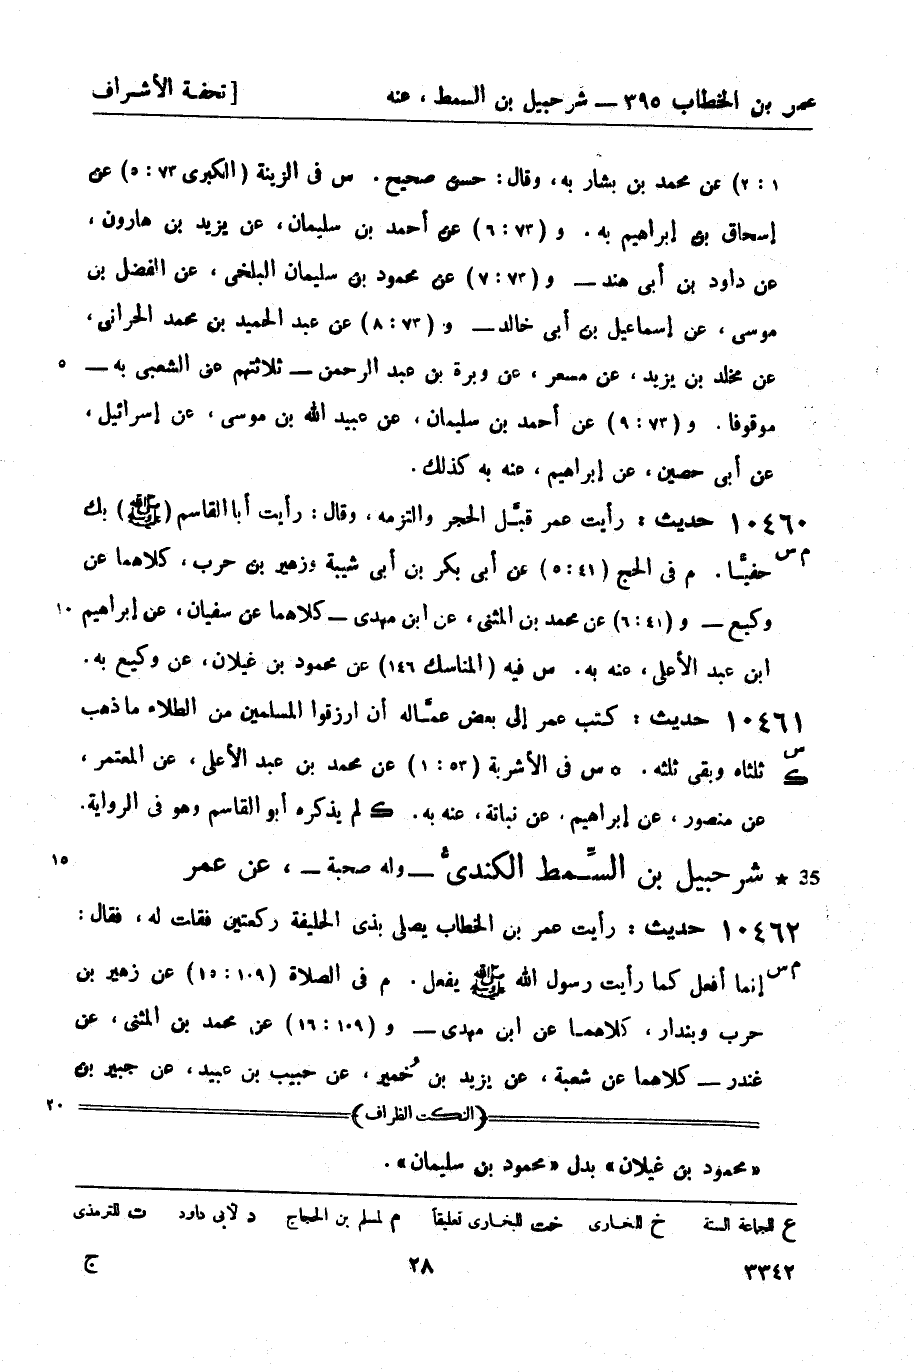 عمر بن الخطاب ٣٩٥ ــ شرحبيل بن السمط ، عنه [ تحفة الأشراف
١ : ٢) عن محمد بن بشار به، وقال: حسن صحيح. س فى الزينة (الكبرى ٧٣ : ٥) عن
إسحاق بن إبراهيم به. و (٧٣ : ٦) عن أحمد بن سليمان، عن يزيد بن هارون ،
عن داود بن أبى هند ــ و (٧٣ : ٧) عن محمود بن سليمان البلخى ، عن الفضل بن
موسى ، عن إسماعيل بن أبى خالد ــ و (٧٣ : ٨) عن عبد الحميد بن محمد الحرانى،
عن مخلد بن يزيد ، عن مسعر ، عن وبرة بن عبد الرحمن ــ ثلاثتهم عن الشعبى به ــ ٥
موقوفا. و (٧٣ : ٩) عن أحمد بن سليمان، عن عبيد الله بن موسى ، عن إسرائيل ،
عن أبى حصين ، عن إبراهيم ، عنه به كذلك.
١٠٤٦٠ حديث : رأيت عمر قبَّل الحجر والتزمه، وقال: رأيت أبا القاسم (ﷺ) بك
م س حفيًّا. م فى الحج (٤١ : ٥) عن أبى بكر بن أبى شيبة وزهير بن حرب ، كلاهما عن
وكيع ــ و (٤١ : ٦) عن محمد بن المثنى، عن ابن مهدى ــ كلاهما عن سفيان، عن إبراهيم ١٠
ابن عبد الأعلى ، عنه به. س فيه (المناسك ١٤٦) عن محمود بن غيلان، عن وكيع به.
١٠٤٦١ حديث : كتب عمر إلى بعض عمَّاله أن ارزقوا المسلمين من الطلاء ما ذهب
س ك ثلثاه وبقى ثلثه. ٥ س فى الأشربة (٥٣ : ١) عن محمد بن عبد الأعلى ، عن المعتمر ،
عن منصور ، عن إبراهيم ، عن نباتة، عنه به. ك لم يذكره أبو القاسم وهو فى الرواية.
35 ★ شرحبيل بن السِّمط الكندىُّ ــ وله صحبة ــ ، عن عمر ١٥
١٠٤٦٢ حديث : رأيت عمر بن الخطاب يصلى بذى الحليفة ركعتين فقلت له ، فقال:
م س إنما أفعل كما رأيت رسول الله ﷺ يفعل. م فى الصلاة (١٠٩ : ١٥) عن زهير بن
حرب وبندار ، كلاهمـا عن ابن مهدى ــ و (١٠٩ : ١٦) عن محمد بن المثنى، عن
غندر ــ كلاهما عن شعبة ، عن يزيد بن خُمير ، عن حبيب بن عبيد، عن جبير بن
(النكت الظراف) ٢٠
«محمود بن غيلان» بدل «محمود بن سليمان».
ع للجماعة الستة خ للبخارى خت للبخارى تعليقاً م لمسلم بن الحجاج د لأبى داود ت للترمذى
٣٣٤٢ ٢٨ ج